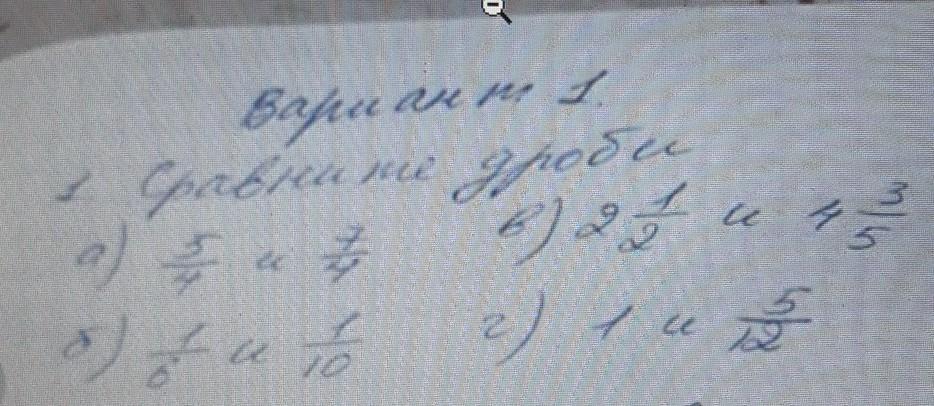 Вариант 1.
1 Сравните дроби
а) 5/4 и 7/4
в) 2 1/2 и 4 3/5
б) 1/6 и 1/10
г) 1 и 5/12